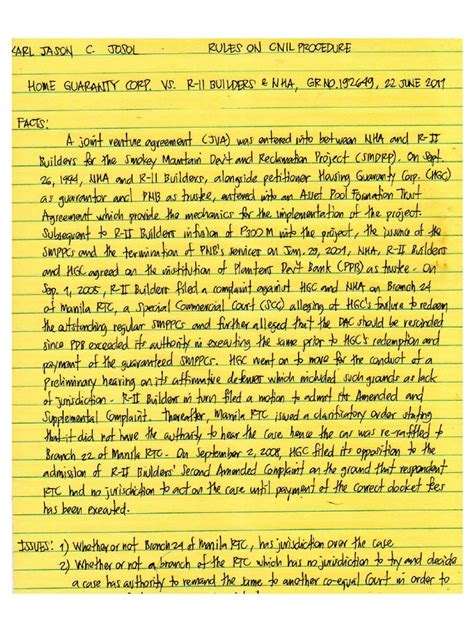 KARL JASON C. JOSOL RULES ON CIVIL PROCEDURE
HOME GUARANTY CORP. VS. R-II BUILDERS & NHA, GR NO. 192649, 22 JUNE 2011
FACTS:
A joint venture agreement (JVA) was entered into between NHA and R-II
Builders for the Smokey Mountain Dev't and Reclamation Project (SMDRP). On Sept.
26, 1994, NHA and R-II Builders, alongside petitioner Housing Guaranty Corp. (HGC)
as guarantor and PNB as trustee, entered into an Asset Pool Formation Trust
Agreement which provide the mechanics for the implementation of the project.
Subsequent to R-II Builders infusion of P300M into the project, the issuance of the
SMPPCs and the termination of PNB's services on Jan. 29, 2001, NHA, R-II Builders
and HGC agreed on the institution of Planters Dev't Bank (PPB) as trustee. On
Sep. 1, 2005, R-II Builders filed a complaint against HGC and NHA on Branch 24
of Manila RTC, a Special Commercial Court (SCC) alleging of HGC's failure to redeem
the outstanding regular SMPPCs and further alleged that the DAC should be rescinded
since PDB exceeded its authority in executing the same prior to HGC's redemption and
payment of the guaranteed SMPPCs. HGC went on to move for the conduct of a
preliminary hearing on its affirmative defenses which included such grounds as lack
of jurisdiction - R-II Builders in turn filed a motion to admit its Amended and
Supplemental Complaint. Thereafter, Manila RTC issued a clarificatory order stating
that it did not have the authority to hear the case hence the case was re-raffled to
Branch 22 of Manila RTC. On September 2, 2008, HGC filed its opposition to the
admission of R-II Builders' Second Amended Complaint on the ground that respondent
RTC had no jurisdiction to act on the case until payment of the correct docket fees
has been executed.
ISSUES: 1) Whether or not Branch 24 of Manila RTC, has jurisdiction over the case
2) Whether or not a branch of the RTC which has no jurisdiction to try and decide
a case has authority to remand the same to another co-equal Court in order to